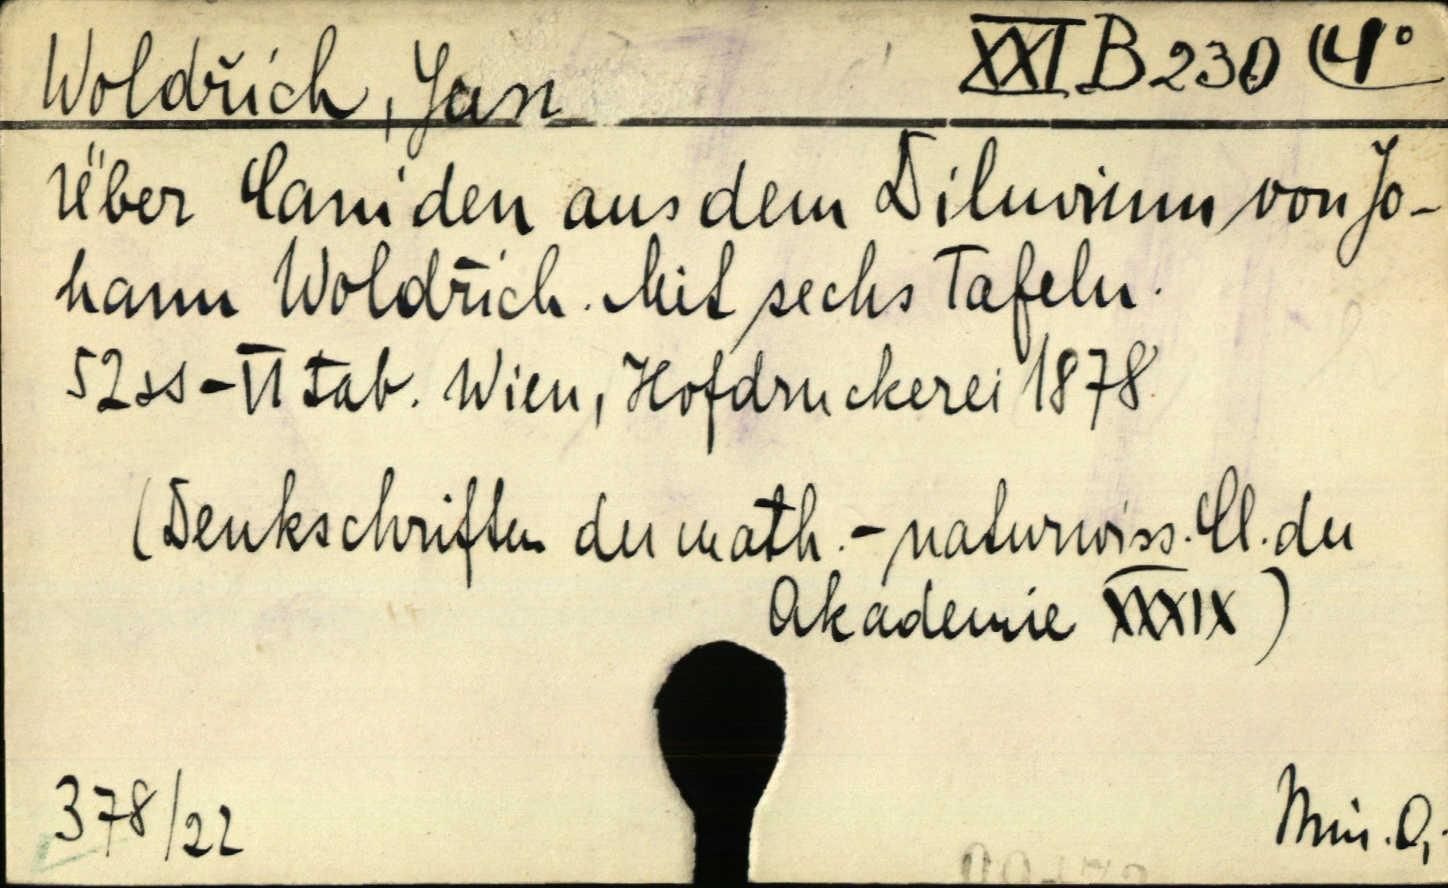 Woldřich, Jan
XXI B 230 4°
Über Caniden aus dem Diluvium von Jo-
hann Woldřich. Mit sechs Tafeln.
52 ss - VI tab. Wien, Hofdruckerei 1878
(Denkschriften der math. - naturwiss. Cl. der
Akademie XXXIX)
378/22
Min. O,-